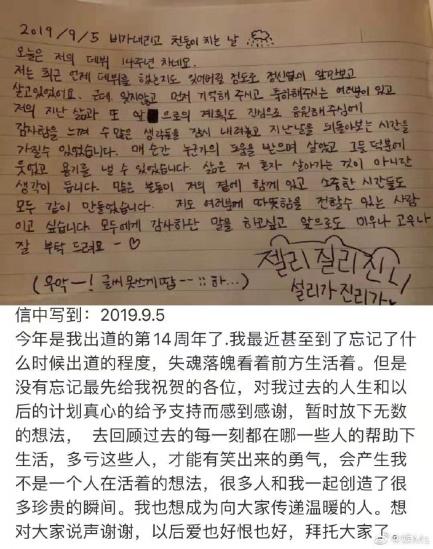 2019/9/5 비가내리고 천둥이 치는 날
오늘은 저의 데뷔 14주년 차네요.
저는 최근 언제 데뷔를 했는지도 잊어버릴 정도로 정신없이 앞만보고
살고있었어요. 근데 잊지않고 먼저 기억해 주시고 축하해주시는 여러분이 있고
저의 지난 삶과 또 앞으로의 계획도 진심으로 응원해주심에
감사함을 느껴 수 많은 생각들을 잠시 내려놓고 지난날을 되돌아보는 시간을
가질수 있었습니다. 매 순간 누군가의 도움을 받으며 살았고 그들 덕분에
웃었고 용기를 낼 수 있었습니다. 삶은 저 혼자 살아가는 것이 아니란
생각이 듭니다. 많은 분들이 저의 곁에 함께 있고 소중한 시간들도
모두 같이 만들었습니다. 저도 여러분께 따뜻함을 전할수 있는 사람
이고 싶습니다. 모두에게 감사하단 말을 하고싶고 앞으로도 미우나 고우나
잘 부탁 드려요 - ♡
젤리 질리 진리
설리가 진리가
(으악-! 글씨 못쓰겠땀-- :: 하...)
信中写到：2019.9.5
今年是我出道的第14周年了.我最近甚至到了忘记了什
么时候出道的程度，失魂落魄看着前方生活着。但是
没有忘记最先给我祝贺的各位，对我过去的人生和以
后的计划真心的给予支持而感到感谢，暂时放下无数
的想法， 去回顾过去的每一刻都在哪一些人的帮助下
生活，多亏这些人，才能有笑出来的勇气，会产生我
不是一个人在活着的想法，很多人和我一起创造了很
多珍贵的瞬间。我也想成为向大家传递温暖的人。想
对大家说声谢谢，以后爱也好恨也好，拜托大家了